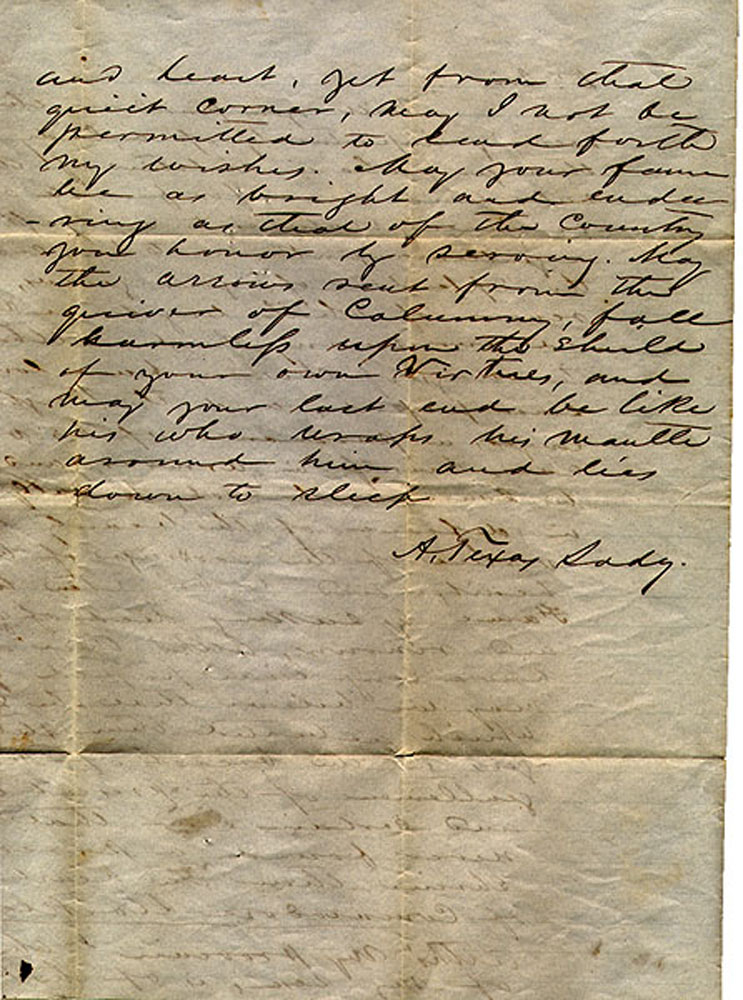 and heart, yet from that
quiet corner, may I not be
permitted to send forth
my wishes. May your fame
be as bright and endu
-ring as that of the Country
you honor by serving. May
the arrows sent from the
quiver of Calumny, fall
harmless upon the Shield
of your own Virtues, and
may your last end be like
his who wraps his mantle
around him and lies
down to sleep
A. Texas Lady.